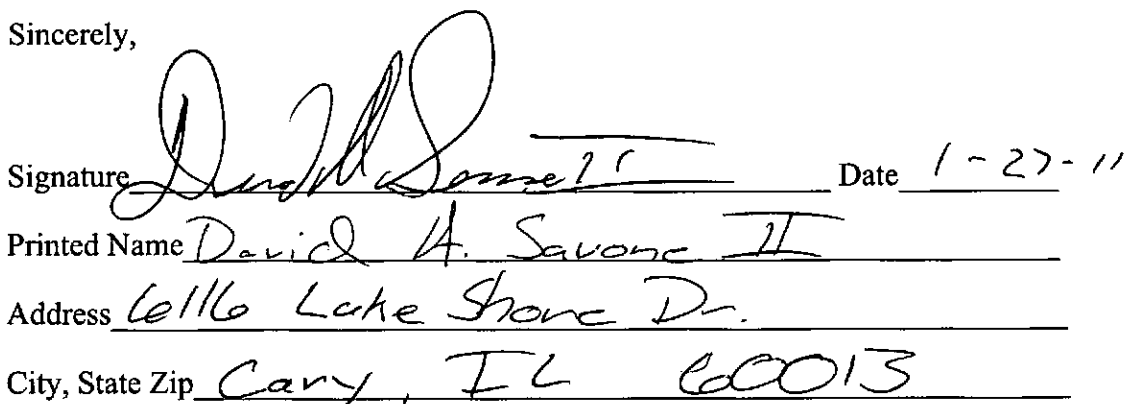 Sincerely,
Signature Date 1-27-11
Printed Name David A. Savone II
Address 6116 Lake Shore Dr.
City, State Zip Cary, IL 60013